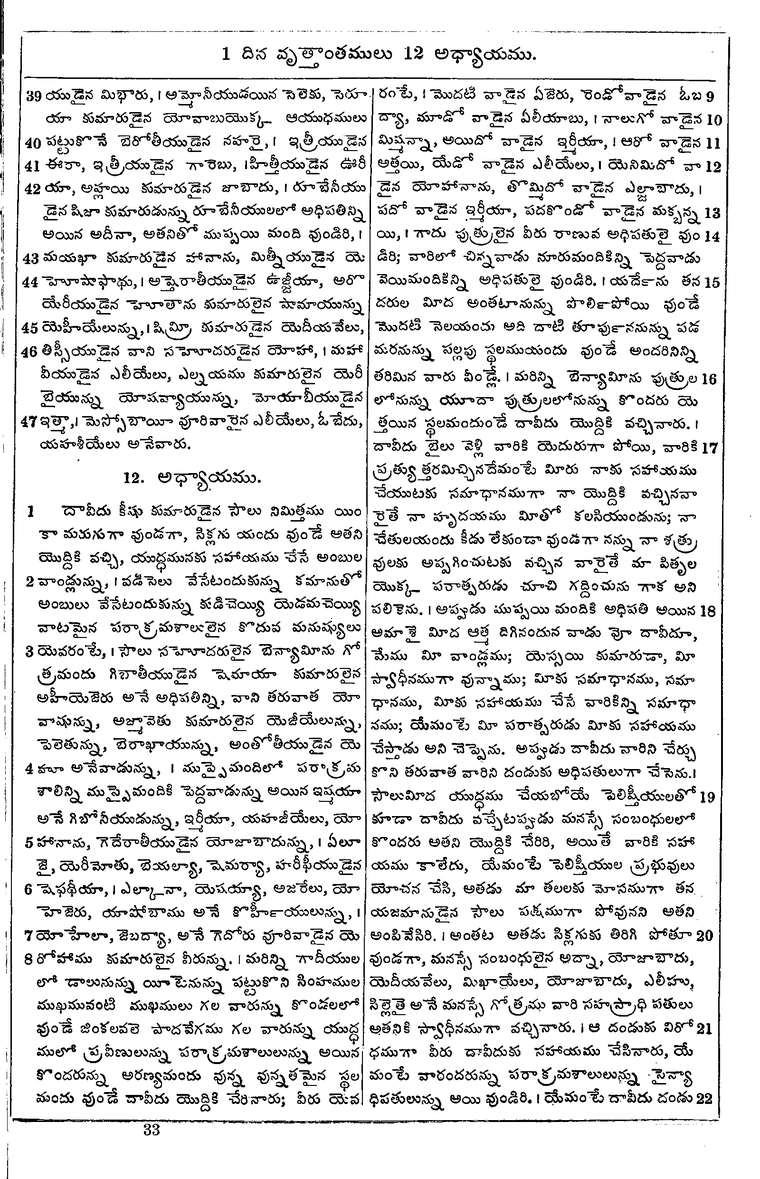 1 దిన వృత్తాంతములు 12 అధ్యాయము.
39 యుడైన మిభారు, । అమ్మోనీయుడయిన సెలెకు, సెరూ
యా కుమారుడైన యోవాబుయొక్క ఆయుధములు
40 పట్టుకొనే బెరోతీయుడైన నహరై, । ఇత్రీయుడైన
41 ఈరా, ఇత్రీయుడైన గారెబు, ।హిత్తీయుడైన ఊరీ
42 యా, అహ్లయి కుమారుడైన జాబాదు, । రూబేనీయు
డైన షిజా కుమారుడున్ను రూబేనీయులలో అధిపతిన్ని
అయిన అదీనా, అతనితో ముప్పయి మంది వుండిరి, ।
43 మయఖా కుమారుడైన హానాను, మిత్నీయుడైన యె
44 హెూషాఫాథు, । అష్తెరాతీయుడైన ఉజ్జీయా, అరొ
యేరీయుడైన హెూతాను కుమారులైన షామాయున్ను
45 యెహీయేలున్ను, । షిమ్రి కుమారుడైన యెదీయవేలు,
46 తిస్సీయుడైన వాని సహెూదరుడైన యోహా, । మహా
వీయుడైన ఎలీయేలు, ఎల్నయము కుమారులైన యెరీ
బైయున్ను యోషవ్యాయున్ను, మోయాబీయుడైన
47 ఇత్మా, । మెస్సోబాయీ వూరివారైన ఎలీయేలు, ఓబేదు,
యహశీయేలు అనేవారు.
12. అధ్యాయము.
1 దావీదు కీషు కుమారుడైన సౌలు నిమిత్తము యిం
కా మరుగుగా వుండగా, సిక్లగు యందు వుండే అతని
యొద్దికి వచ్చి, యుద్ధమునకు సహాయము చేసే అంబుల
2 వాండ్లున్ను, । వడిసెలు వేసేటందుకున్ను కమానుతో
అంబులు వేసేటందుకున్ను కుడిచెయ్యి యెడమచెయ్యి
వాటమైన పరాక్రమశాలులైన కొదువ మనుష్యులు
3 యెవరంటే, । సౌలు సహెూదరులైన బెన్యామీను గో
త్రమందు గిబాతీయుడైన షెమాయా కుమారులైన
అహీయెజెరు అనే అధిపతిన్ని, వాని తరువాత యో
వాషున్ను, అజ్మావెతు కుమారులైన యెజీయేలున్ను,
పెలెతున్ను, బెరాఖాయున్ను, అంతోతీయుడైన యె
4 హూ అనేవాడున్ను, । ముప్పైమందిలో పరాక్రమ
శాలిన్ని ముప్పైమందికి పెద్దవాడున్ను అయిన ఇష్మయా
అనే గిబోనీయుడున్ను, ఇర్మీయా, యహజీయేలు, యో
5 హానాను, గెదేరాతీయుడైన యోజాబాదున్ను, । ఏలూ
జై, యెరీమోతు, బెయల్యా, షెమర్యా, హరీఫీయుడైన
6 షెఫథీయా, । ఎల్కానా, యెషయ్యా, అజరేలు, యో
హెజెరు, యాషోబాము అనే కొర్హీయులున్ను, ।
7 యోహేలా, జెబద్యా, అనే గెదోరు వూరివాడైన యె
8 రోహాము కుమారులైన వీరున్ను. । మరిన్ని గాదీయుల
లో డాలునున్ను యీటెనున్ను పట్టుకొని సింహముల
ముఖమువంటి ముఖములు గల వారున్ను కొండలలో
వుండే జింకలవలె పాదవేగము గల వారున్ను యుద్ధ
ములో ప్రవీణులున్ను పరాక్రమశాలులున్ను అయిన
కొందరున్ను అరణ్యమందు వున్న వున్నతమైన స్థల
మందు వుండే దావీదు యొద్దికి చేరినారు; వీరు యెవ
రంటే, । మొదటి వాడైన ఏజెరు, రెండోవాడైన ఓబ 9
ద్యా, మూడో వాడైన ఏలీయాబు, । నాలుగో వాడైన 10
మిష్మన్నా, అయిదో వాడైన ఇర్మీయా, । ఆరో వాడైన 11
అత్తయి, యేడో వాడైన ఎలీయేలు, । యెనిమిదో వా 12
డైన యోహానాను, తొమ్మిదో వాడైన ఎల్జాబాదు, ।
పదో వాడైన ఇర్మీయా, పదకొండో వాడైన మక్బన్న 13
యి, । గాదు పుత్రులైన వీరు రాణువ అధిపతులై వుం 14
డిరి; వారిలో చిన్నవాడు నూరుమందికిన్ని పెద్దవాడు
వెయిమందికిన్ని అధిపతులై వుండిరి. । యర్దేను తన 15
దరుల మీద అంతటానున్ను పొర్లిపోయి వుండే
మొదటి నెలయందు అది దాటి తూర్పుననున్ను పడ
మరనున్ను పల్లపు స్థలముయందు వుండే అందరినిన్ని
తరిమిన వారు వీండ్లే. । మరిన్ని బెన్యామీను పుత్రుల 16
లోనున్ను యూదా పుత్రులలోనున్ను కొందరు యె
త్తయిన స్థలమందుండే దావీదు యొద్దికి వచ్చినారు. ।
దావీదు బైలు వెళ్లి వారికి యెదురుగా పోయి, వారికి 17
ప్రత్యుత్తరమిచ్చినదేమంటే మీరు నాకు సహాయము
చేయుటకు సమాధానముగా నా యొద్దికి వచ్చినవా
రైతే నా హృదయము మీతో కలసియుండును; నా
చేతులయందు కీడు లేకుండా వుండగా నన్ను నా శత్రు
వులకు అప్పగించుటకు వచ్చిన వారైతే మా పితృల
యొక్క పరాత్పరుడు చూచి గద్దించును గాక అని
పలికెను. । అప్పుడు ముప్పయి మందికి అధిపతి అయిన 18
అమాశై మీద ఆత్మ దిగినందున వాడు వో దావీదూ,
మేము మీ వాండ్లము; యెస్సయి కుమారుడా, మీ
స్వాధీనముగా వున్నాము; మీకు సమాధానము, సమా
ధానము, మీకు సహాయము చేసే వారికిన్ని సమాధా
నము; యేమంటే మీ పరాత్పరుడు మీకు సహాయము
చేస్తాడు అని చెప్పెను. అప్పుడు దావీదు వారిని చేర్చు
కొని తరువాత వారిని దండుకు అధిపతులుగా చేసెను.।
సౌలుమీద యుద్ధము చేయబోయే పెలిష్తీయులతో 19
కూడా దావీదు వచ్చేటప్పుడు మనస్సే సంబంధులలో
కొందరు అతని యొద్దికి చేరిరి, అయితే వారికి సహా
యము కాలేదు, యేమంటే పెలిష్తీయుల ప్రభువులు
యోచన చేసి, అతడు మా తలలకు మోసముగా తన
యజమానుడైన సౌలు పక్షముగా పోవునని అతని
అంపివేసిరి. । అంతట అతడు సిక్లగుకు తిరిగి పోతూ 20
వుండగా, మనస్సే సంబంధులైన అద్నా, యోజాబాదు,
యెదీయవేలు, మిఖాయేలు, యోజాబాదు, ఎలీహు,
సిల్లెతై అనే మనస్సే గోత్రము వారి సహస్రాధి పతులు
అతనికి స్వాధీనముగా వచ్చినారు. । ఆ దండుకు విరో 21
ధముగా వీరు దావీదుకు సహాయము చేసినారు, యే
మంటే వారందరున్ను పరాక్రమశాలులున్ను సైన్యా
ధిపతులున్ను అయి వుండిరి. । యేమంటే దావీదు దండు 22
33